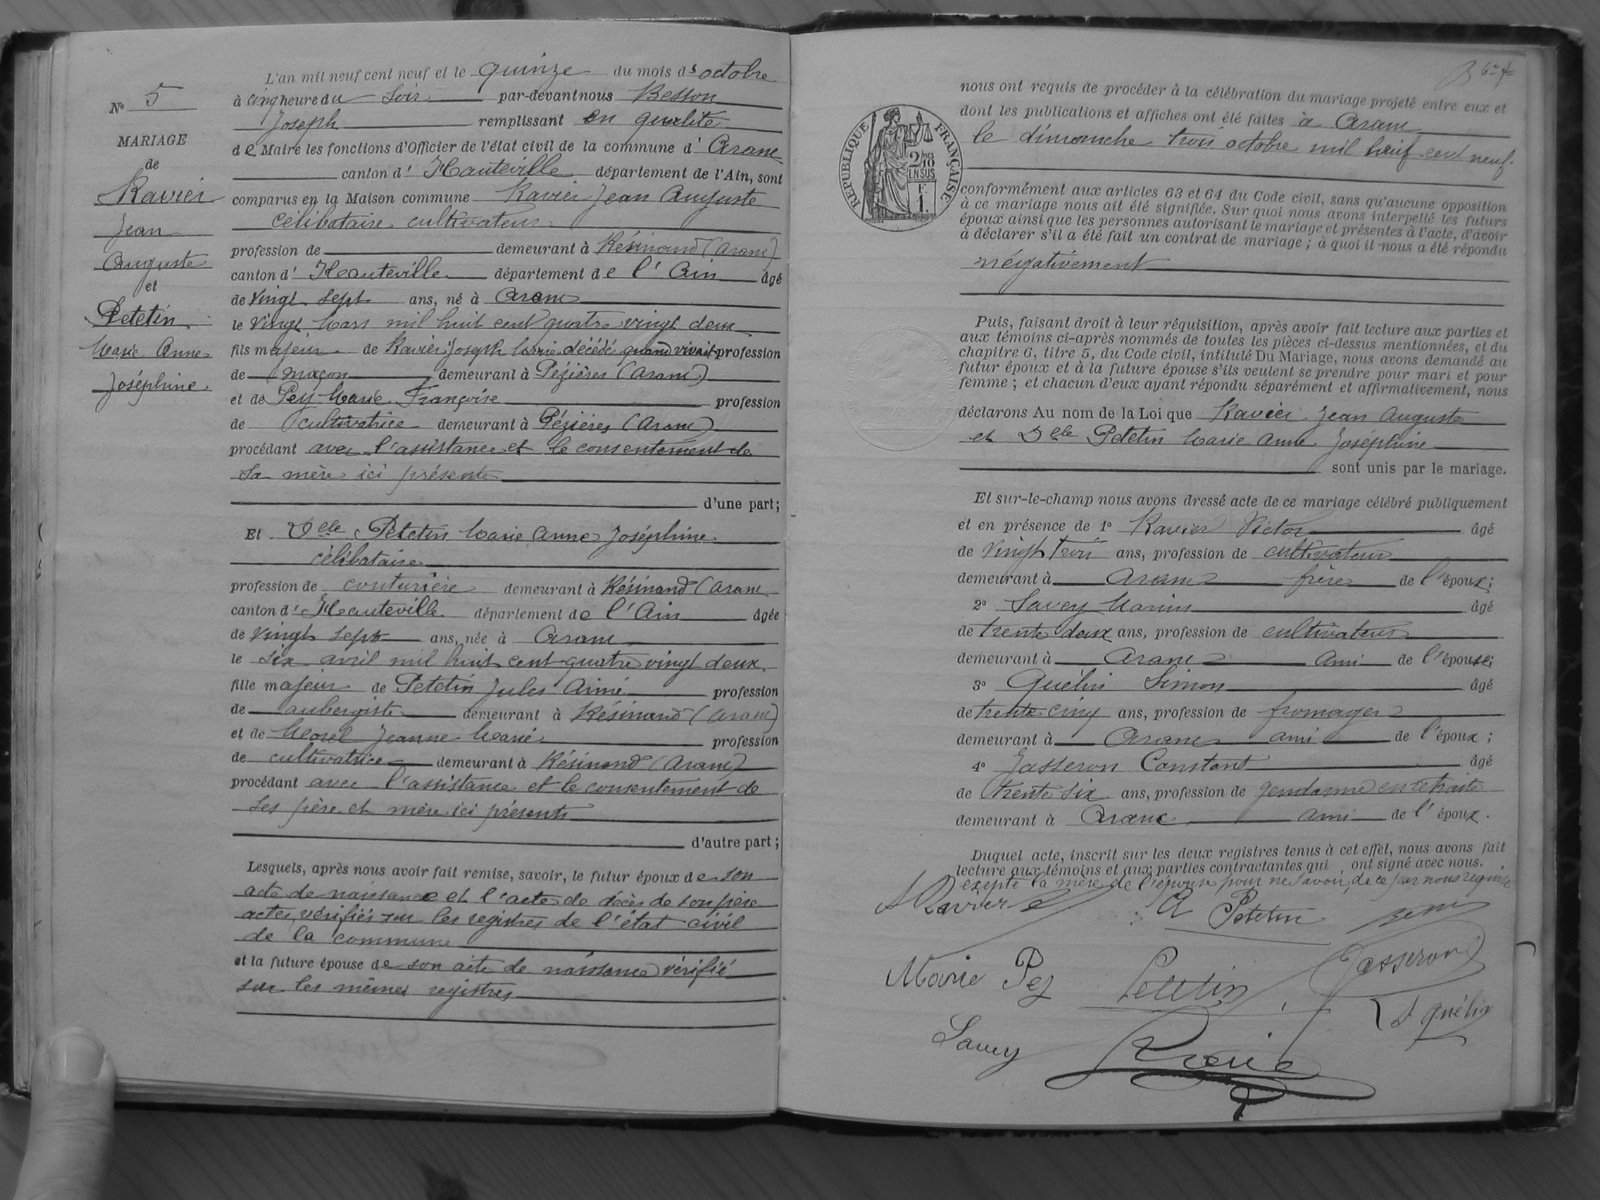 L'an mil neuf cent neuf et le quinze du mois d'octobre
à cinq heure du Soir par-devant nous Besson
Joseph remplissant en qualité
de Maire les fonctions d'Officier de l'état civil de la commune d' Aranc
canton d' Hauteville département de l'Ain, sont
comparus en la Maison commune Ravier Jean Auguste
célibataire cultivateur
profession de demeurant à Résinand (Aranc)
canton d' Hauteville département de l'Ain âgé
de vingt sept ans, né à Aranc
le vingt Mars mil huit cent quatre vingt deux
fils majeur de Ravier Joseph Marie décédé quand vivait profession
de maçon demeurant à Pézières (Aranc)
et de Pey Marie Françoise profession
de cultivatrice demeurant à Pézières (Aranc)
procédant avec l'assistance et le consentement de
sa mère ici présente
d'une part;
Et Delle Petetin Marie Anne Joséphine
célibataire
profession de couturière demeurant à Résinand (Aranc
canton d' Hauteville département de l'Ain âgée
de vingt sept ans, née à Aranc
le six avril mil huit cent quatre vingt deux
fille majeur de Petetin Jules Aimé profession
de aubergiste demeurant à Résinand (Aranc)
et de Morel Jeanne Marie profession
de cultivatrice demeurant à Résinand (Aranc)
procédant avec l'assistance et le consentement de
ses père et mère ici présents
d'autre part;
Lesquels, après nous avoir fait remise, savoir, le futur époux de son
acte de naissance et l'acte de décès de son père
actes vérifiés sur les registres de l'état civil
de la commune
et la future épouse de son acte de naissance vérifié
sur les mêmes registres
N° 5
MARIAGE
de
Ravier
Jean
Auguste
et
Petetin
Marie Anne
Joséphine.
nous ont requis de procéder à la célébration du mariage projeté entre eux et
dont les publications et affiches ont été faites à Aranc
le dimanche trois octobre mil neuf cent neuf.
conformément aux articles 63 et 64 du Code civil, sans qu'aucune opposition
à ce mariage nous ait été signifiée. Sur quoi nous avons interpellé les futurs
époux ainsi que les personnes autorisant le mariage et présentes à l'acte, d'avoir
à déclarer s'il a été fait un contrat de mariage; à quoi il nous a été répondu
négativement
Puis, faisant droit à leur réquisition, après avoir fait lecture aux parties et
aux témoins ci-après nommés de toutes les pièces ci-dessus mentionnées, et du
chapitre 6, titre 5, du Code civil, intitulé Du Mariage, nous avons demandé au
futur époux et à la future épouse s'ils veulent se prendre pour mari et pour
femme; et chacun d'eux ayant répondu séparément et affirmativement, nous
déclarons Au nom de la Loi que Ravier Jean Auguste
et Delle Petetin Marie Anne Joséphine
sont unis par le mariage.
Et sur-le-champ nous avons dressé acte de ce mariage célébré publiquement
et en présence de 1° Ravier Victor âgé
de vingt trois ans, profession de cultivateur
demeurant à Aranc frère de l'époux;
2° Savey Marius âgé
de trente deux ans, profession de cultivateur
demeurant à Aranc ami de l'épouse;
3° Quélin Simon âgé
de trente cinq ans, profession de fromager
demeurant à Aranc ami de l'époux;
4° Jasseron Constant âgé
de trente six ans, profession de gendarme en retraite
demeurant à Aranc ami de l'époux.
Duquel acte, inscrit sur les deux registres tenus à cet effet, nous avons fait
lecture aux témoins et aux parties contractantes qui ont signé avec nous.
excepté la mère de l'épouse pour ne savoir, de ce par nous requise
Ravier
Petetin
Marie Pey
Petetin
Jasseron
Quélin
Savey
RÉPUBLIQUE FRANÇAISE
2/10
EN SUS
F.
1.